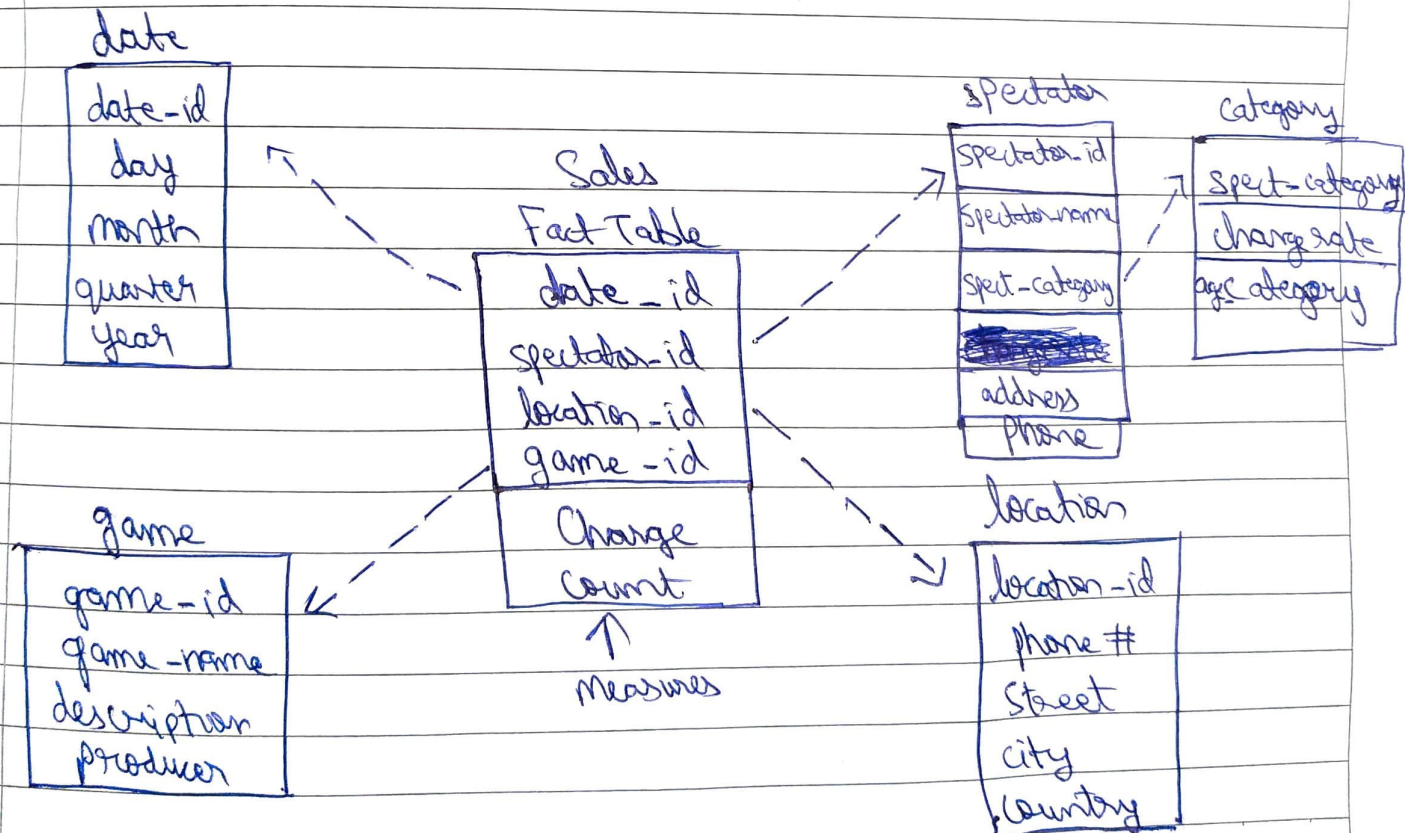 date
date-id
day
month
quarter
year
Sales
Fact Table
date_id
spectator-id
location_id
game-id
Charge
count
measures
spectator
spectator-id
spectator-name
spect-category
address
phone
category
spect-category
charge rate
age category
game
game-id
game-name
description
producer
location
location-id
phone #
street
city
country